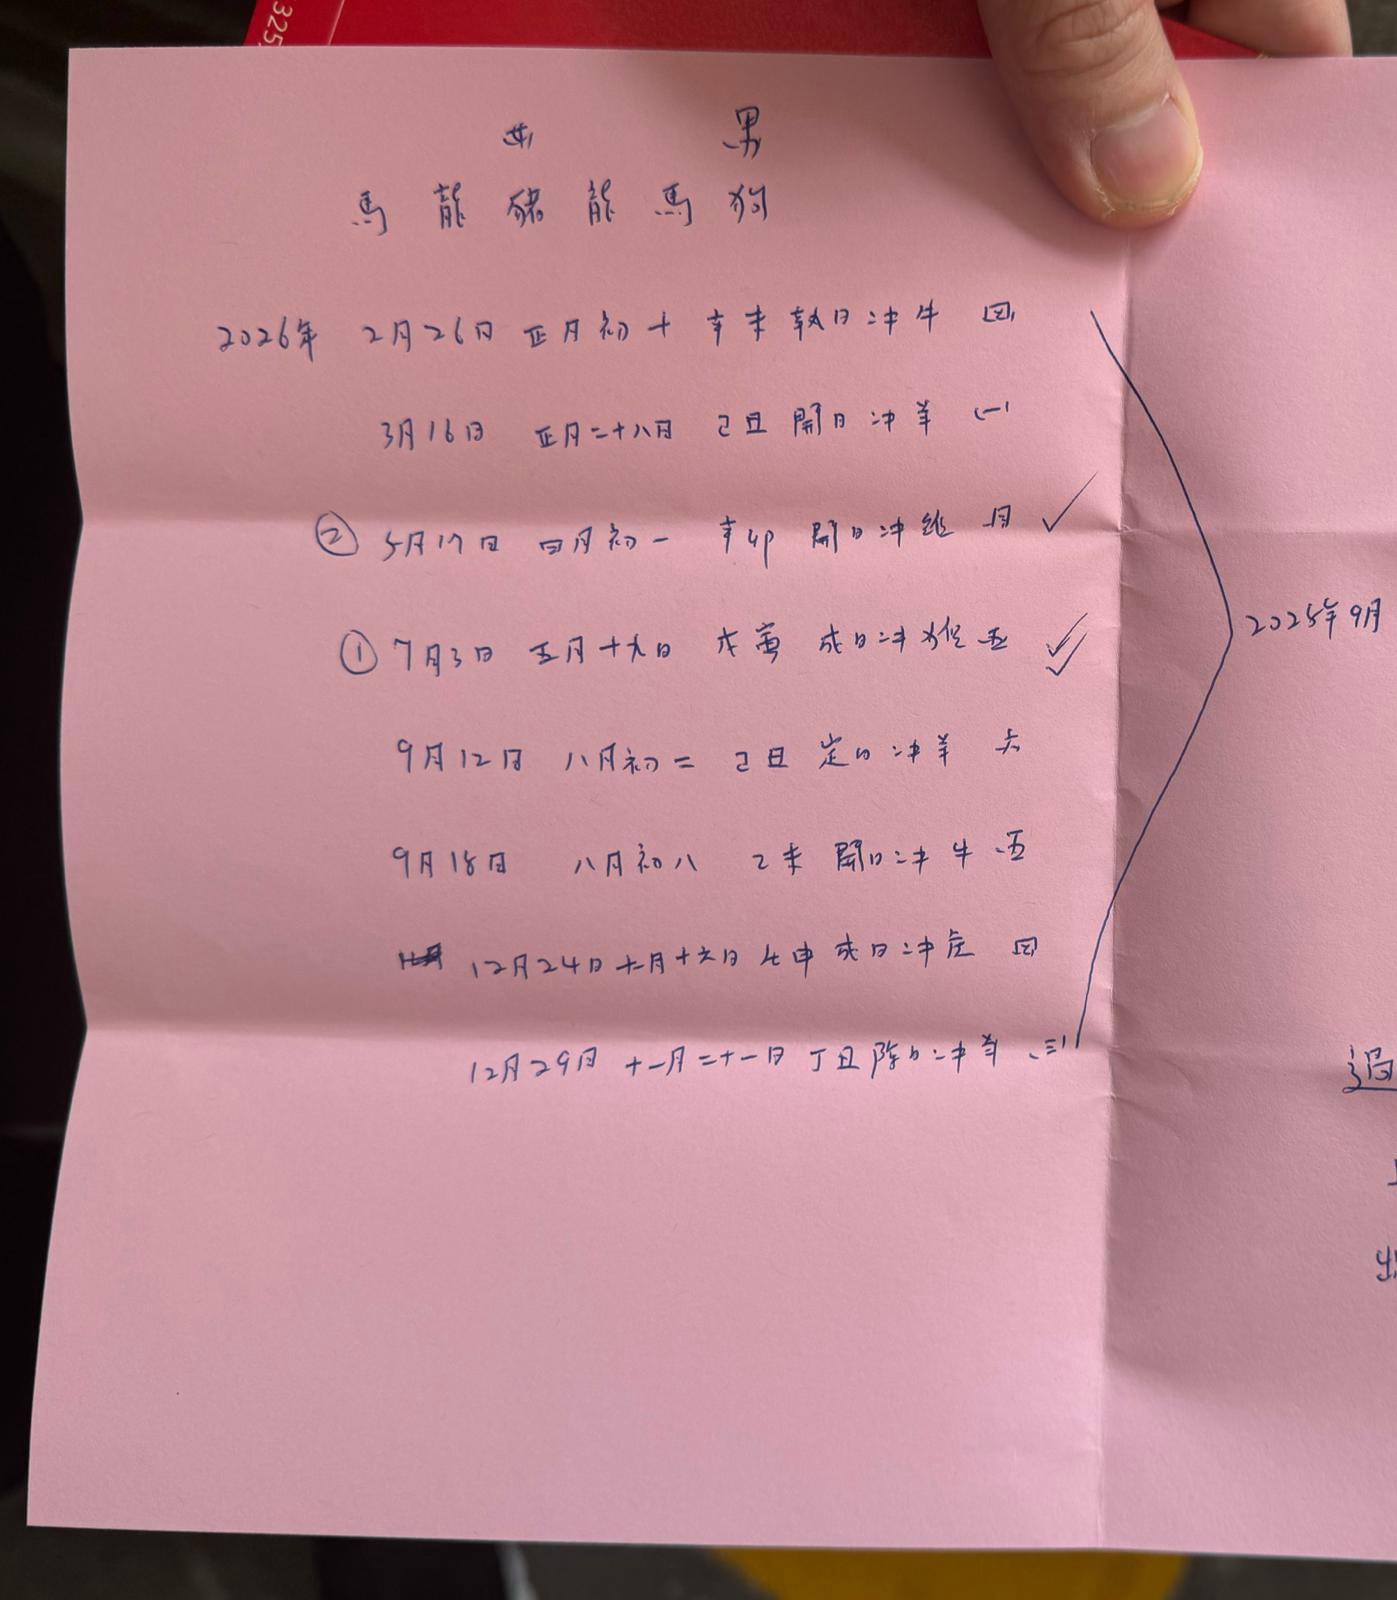 325
女 男
馬 龍 豬 龍 馬 狗
2026年 2月26日 正月初十 辛未 執日冲牛 四
3月16日 正月二十八日 己丑 開日冲羊 一
② 5月17日 四月初一 辛卯 開日冲雞 日 ✓
① 7月3日 五月十九日 戊寅 成日冲猴 五 ✓✓
9月12日 八月初二 己丑 定日冲羊 六
9月18日 八月初八 乙未 開日冲牛 五
12月24日 十一月十六日 壬申 成日冲虎 四
12月29日 十一月二十一日 丁丑 除日冲羊 二
2025年9月
過
出